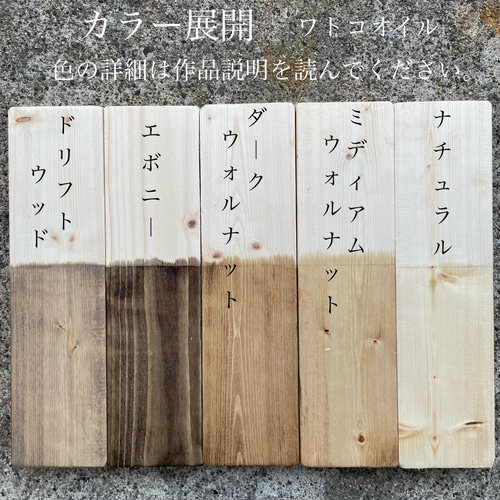 カラー展開 ワトコオイル
色の詳細は作品説明を読んでください。
ドリフト
ウッド
エボニー
ダーク
ウォルナット
ミディアム
ウォルナット
ナチュラル